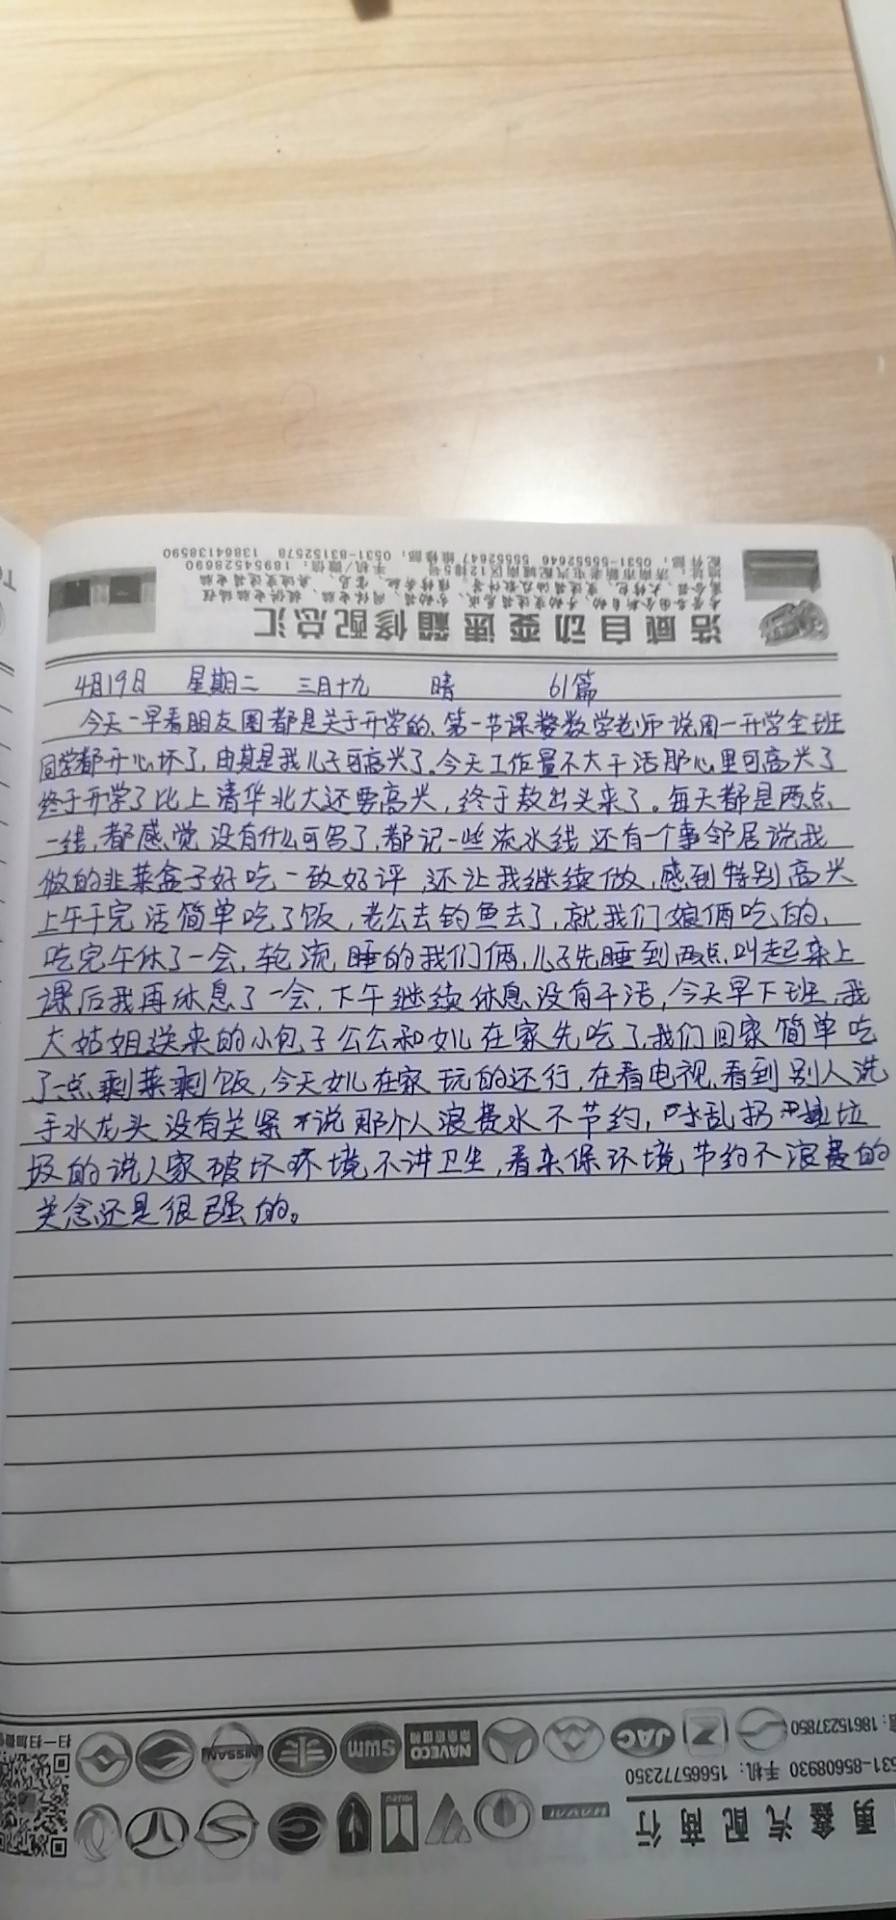 浩威自动变速箱修配总汇
配件部：0531-55552646 55552647 维修部：0531-83152578 13864138590
手机/微信：18954528690
4月19日 星期二 三月十九 晴 61篇
今天一早看朋友圈都是关于开学的，第一节课数学老师说周一开学全班
同学都开心坏了，由其是我儿子可高兴了。今天工作量不大干活那心里可高兴了
终于开学了比上清华北大还要高兴，终于熬出头来了。每天都是两点
一线，都感觉没有什么可写了，都记一些流水线，还有一个事邻居说我
做的韭菜盒子好吃一致好评，还让我继续做，感到特别高兴
上午干完活简单吃了饭，老公去钓鱼去了，就我们娘俩吃的，
吃完午休了一会，轮流睡的我们俩，儿子先睡到两点，叫起来上
课后我再休息了一会，下午继续休息没有干活，今天早下班，我
大姑姐送来的小包子公公和女儿在家先吃了，我们回家简单吃
了一点剩菜剩饭，今天女儿在家玩的还行，在看电视，看到别人洗
手水龙头没有关紧 说那个人浪费水不节约，乱扔 垃
圾的说人家破坏环境不讲卫生，看来保环境，节约不浪费的
关念还是很强的。
扫一扫加微信
NISSAN
SWM
NAVECO
JAC
ISUZU
HAVAL
18615237850
531-85608930 手机：15665772350
勇鑫汽配商行